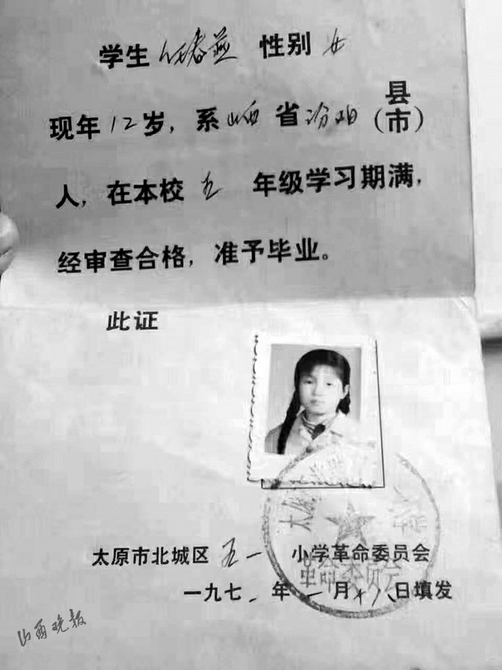 学生 任春燕 性别 女
现年12岁，系山西省汾阳（县市）
人，在本校 五 年级学习期满，
经审查合格，准予毕业。
此证
太原市北城区 五一 小学革命委员会
革命委员会
一九七 年 一月十八日填发
山西晚报